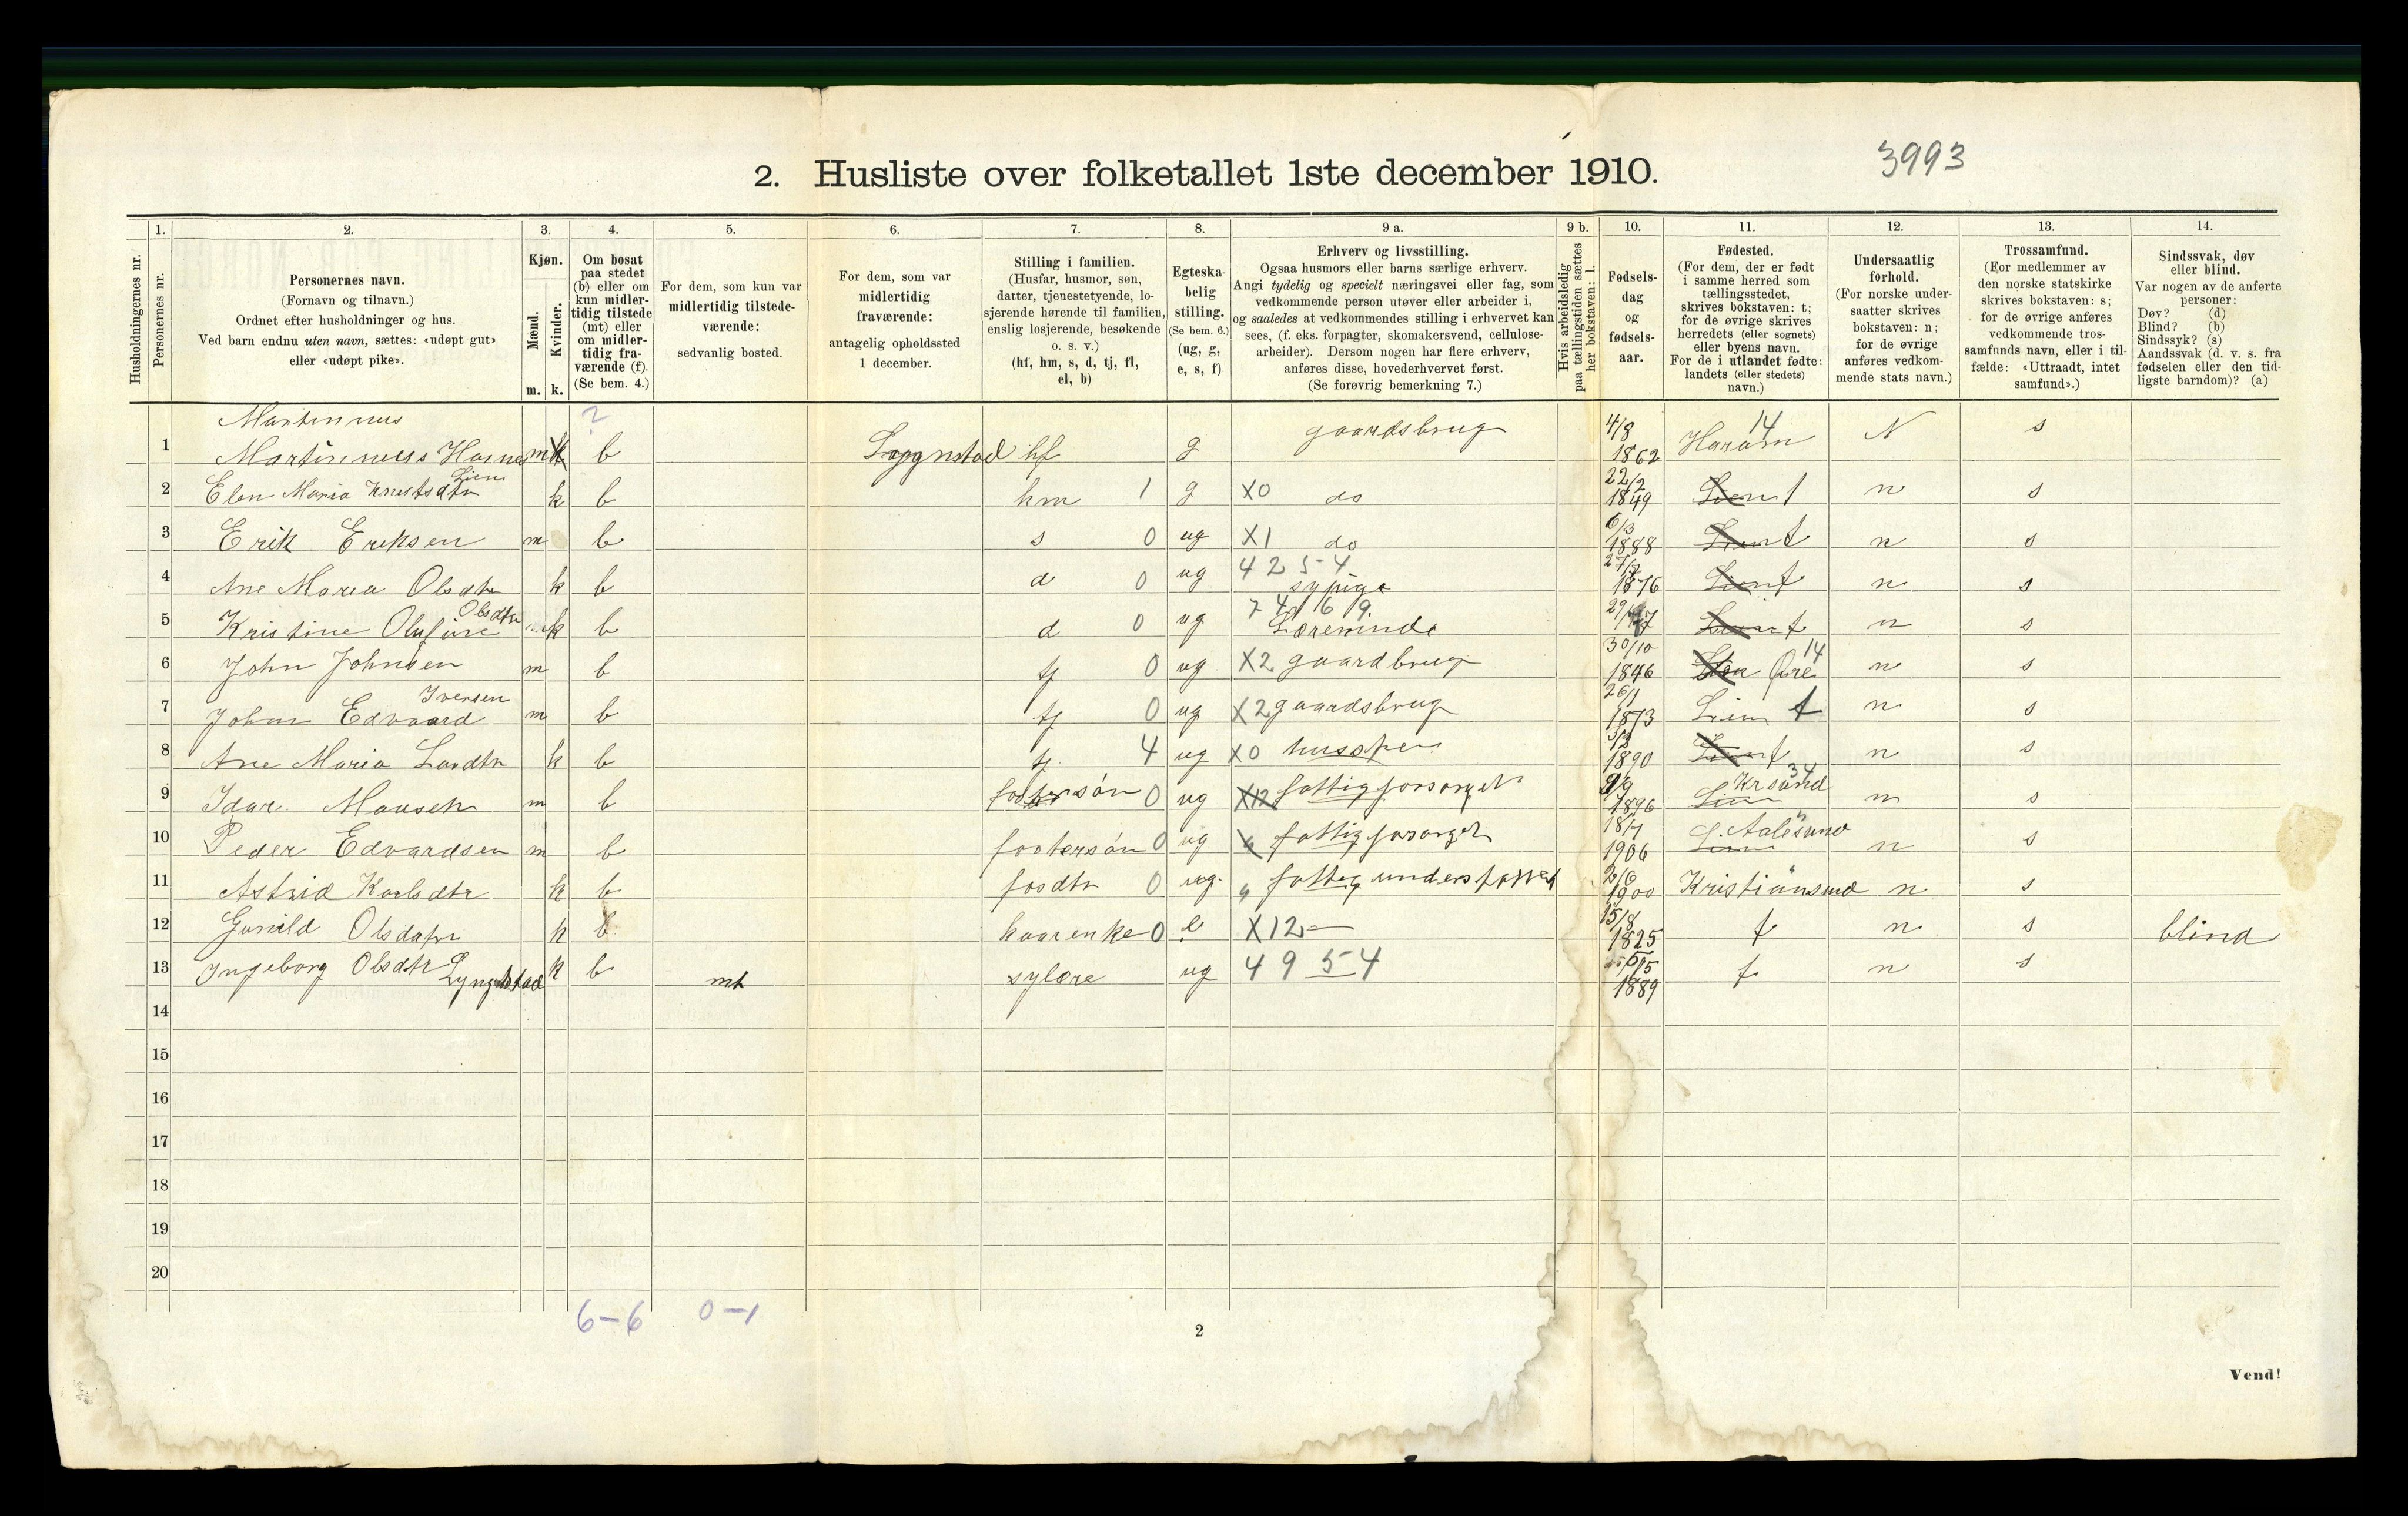 3993
2. Husliste over folketallet 1ste december 1910.
1. 2. 3. 4. 5. 6. 7. 8. 9 a. 9 b. 10. 11. 12. 13. 14.
Husholdningernes nr.
Personernes nr.
Personernes navn.
(Fornavn og tilnavn.)
Ordnet efter husholdninger og hus.
Ved barn endnu uten navn, sættes: «udøpt gut»
eller «udøpt pike».
Kjøn.
Mænd.
Kvinder.
m. k.
Om bosat
paa stedet
(b) eller om
kun midler-
tidig tilstede
(mt) eller
om midler-
tidig fra-
værende (f).
(Se bem. 4.)
For dem, som kun var
midlertidig tilstede-
værende:
sedvanlig bosted.
For dem, som var
midlertidig
fraværende:
antagelig opholdssted
1 december.
Stilling i familien.
(Husfar, husmor, søn,
datter, tjenestetyende, lo-
sjerende hørende til familien,
enslig losjerende, besøkende
o. s. v.)
(hf, hm, s, d, tj, fl,
el, b)
Egteska-
belig
stilling.
(Se bem. 6.)
(ug, g,
e, s, f)
Erhverv og livsstilling.
Ogsaa husmors eller barns særlige erhverv.
Angi tydelig og specielt næringsvei eller fag, som
vedkommende person utøver eller arbeider i,
og saaledes at vedkommendes stilling i erhvervet kan
sees, (f. eks. forpagter, skomakersvend, cellulose-
arbeider). Dersom nogen har flere erhverv,
anføres disse, hovederhvervet først.
(Se forøvrig bemerkning 7.)
Hvis arbeidsledig
paa tællingstiden sættes
her bokstaven: l.
Fødsels-
dag
og
fødsels-
aar.
Fødested.
(For dem, der er født
i samme herred som
tællingsstedet,
skrives bokstaven: t;
for de øvrige skrives
herredets (eller sognets)
eller byens navn.
For de i utlandet fødte:
landets (eller stedets)
navn.)
Undersaatlig
forhold.
(For norske under-
saatter skrives
bokstaven: n;
for de øvrige
anføres vedkom-
mende stats navn.)
Trossamfund.
(For medlemmer av
den norske statskirke
skrives bokstaven: s;
for de øvrige anføres
vedkommende tros-
samfunds navn, eller i til-
fælde: «Uttraadt, intet
samfund».)
Sindssvak, døv
eller blind.
Var nogen av de anførte
personer:
Døv? (d)
Blind? (b)
Sindssyk? (s)
Aandssvak (d. v. s. fra
fødselen eller den tid-
ligste barndom)? (a)
Martinnus ? 14
1 m b hf g gaardsbrug 4/8 1862 Haram N s
2 Elen Maria Knutsdtr Lien k b hm 1 g X0 do 22/2 1849 t n s
3 Erik Eriksen m b s 0 ug X1 do 6/3 1888 t n s
4 Ane Maria Olsdtr k b d 0 ug 4 2 5 4 sypige 1876 t n s
5 Kristine Olufine Olsdtr k b d 0 ug 7 4 6 9. Lærerinde t n s
6 John Johnsen m b tj 0 ug X2 gaardbrug 30/10 1846 Øre 14 n s
7 Johan Edvard Iversen m b tj 0 ug X2 gaardsbrug 26/1 1873 Lien t n s
8 Ane Maria b tj 4 ug X0 1890 t n s
9 Idar m b fostersøn 0 ug X12 fattigforsørget 1896 Lien Krsund 34 n s
10 Peder Edvardsen m b fostersøn 0 ug " fattigforsørget 18/7 1906 Lien Aalesund n s
11 Astrid Karlsdtr k b fosdtr 0 ug " 1900 Kristiansund n s
12 Gunild k b kaarenke 0 e X12 — 15/8 1825 t n s blind
13 Ingeborg Olsdtr k b mt sylære ug 4 9 5 4 1889 t n s
14
15
16
17
18
19
20
6–6 0–1
2
Vend!